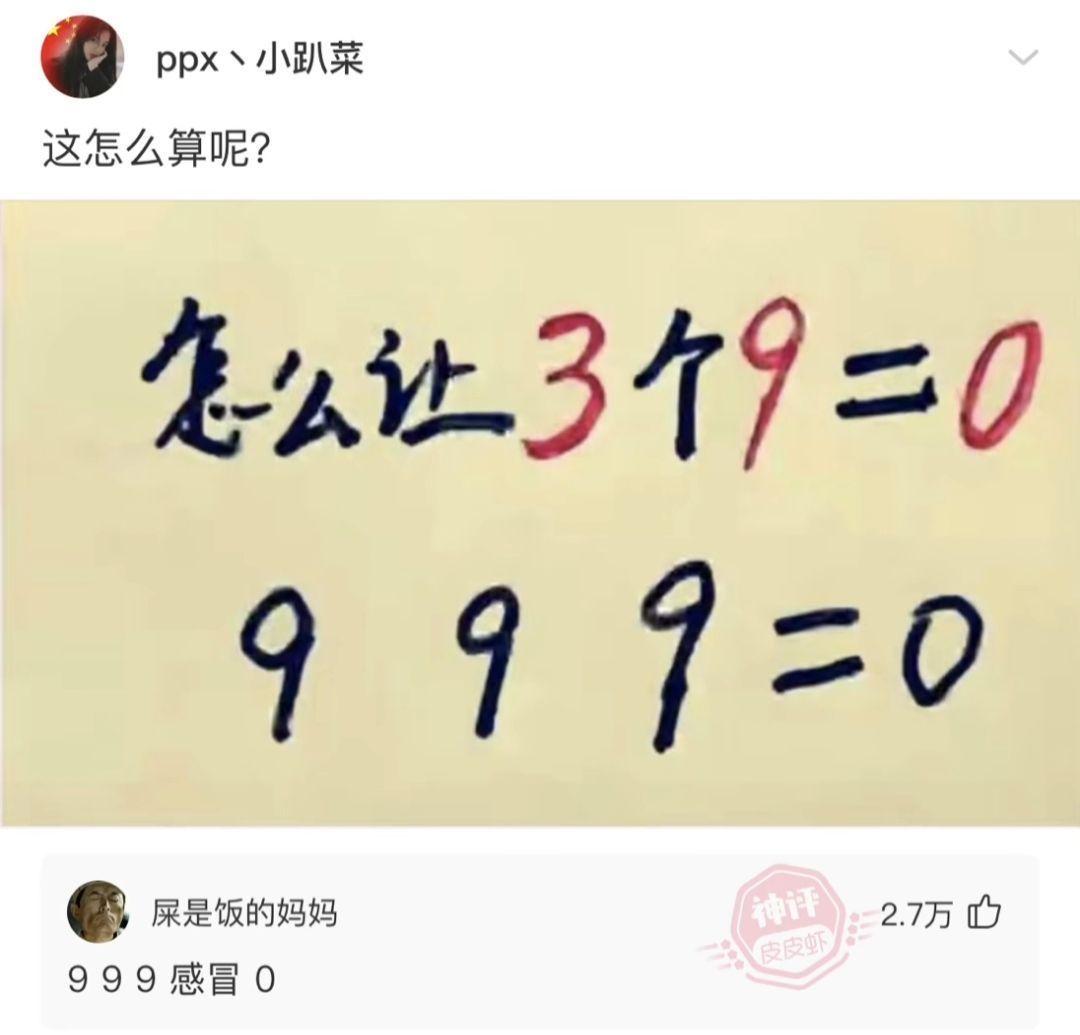 ppx丶小趴菜
这怎么算呢?
怎么让3个9=0
9 9 9=0
屎是饭的妈妈
神评
皮皮虾
2.7万
9 9 9 感冒 0